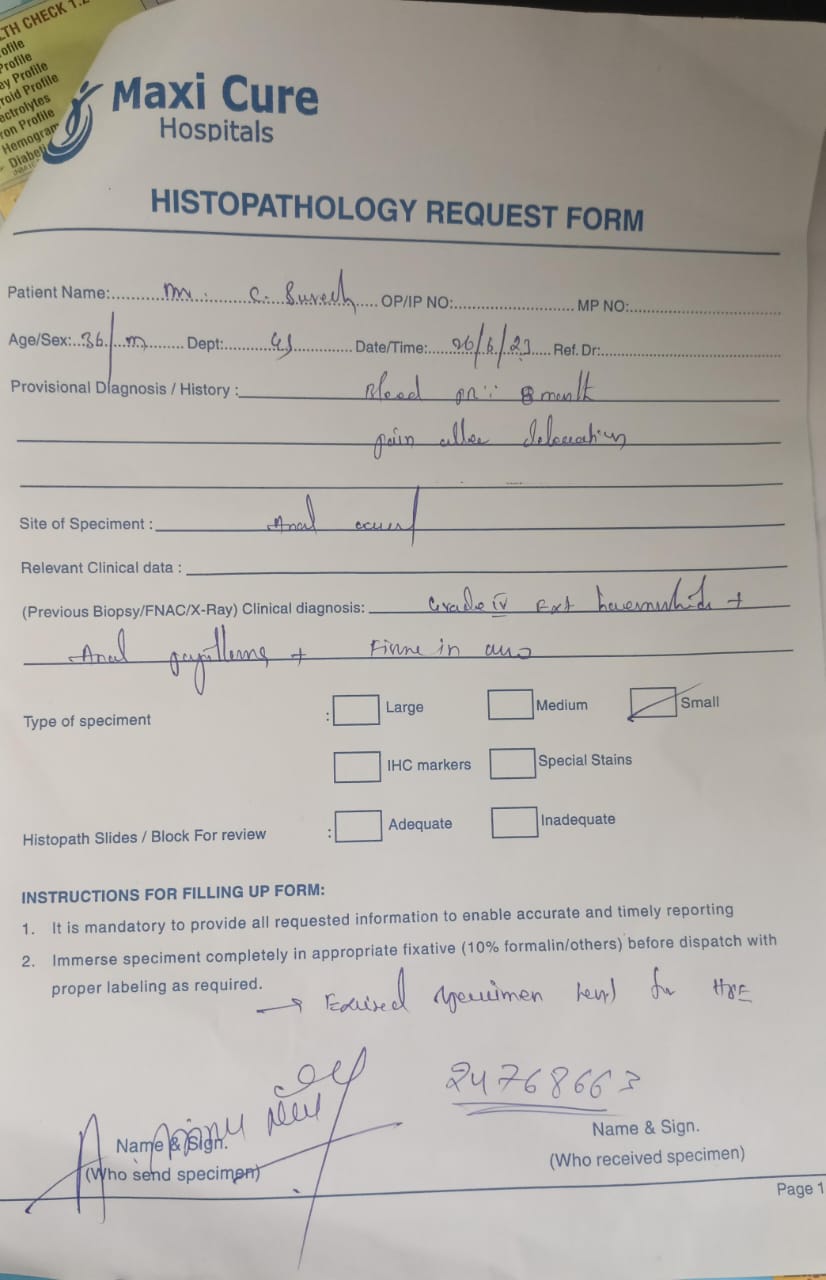 LTH CHECK 1.2
ofile
Profile
ey Profile
roid Profile
ectrolytes
ron Profile
Hemogram
Diabet
Maxi Cure
Hospitals
HISTOPATHOLOGY REQUEST FORM
Patient Name: Mr. C. Suresh OP/IP NO: MP NO:
Age/Sex: 36/m Dept: GS Date/Time: 26/6/23 Ref. Dr:
Provisional Diagnosis / History : Bleed PR 8 month
pain after defaecation
Site of Speciment : Anal
Relevant Clinical data :
(Previous Biopsy/FNAC/X-Ray) Clinical diagnosis: Grade IV Ext haemorrhoids +
Anal papilloma + Fissure in ano
Type of speciment : Large Medium Small
IHC markers Special Stains
Histopath Slides / Block For review : Adequate Inadequate
INSTRUCTIONS FOR FILLING UP FORM:
1. It is mandatory to provide all requested information to enable accurate and timely reporting
2. Immerse speciment completely in appropriate fixative (10% formalin/others) before dispatch with
proper labeling as required.
→ Excised specimen sent for HPE
24768663
Name & Sign.
(Who send specimen)
Name & Sign.
(Who received specimen)
Page 1